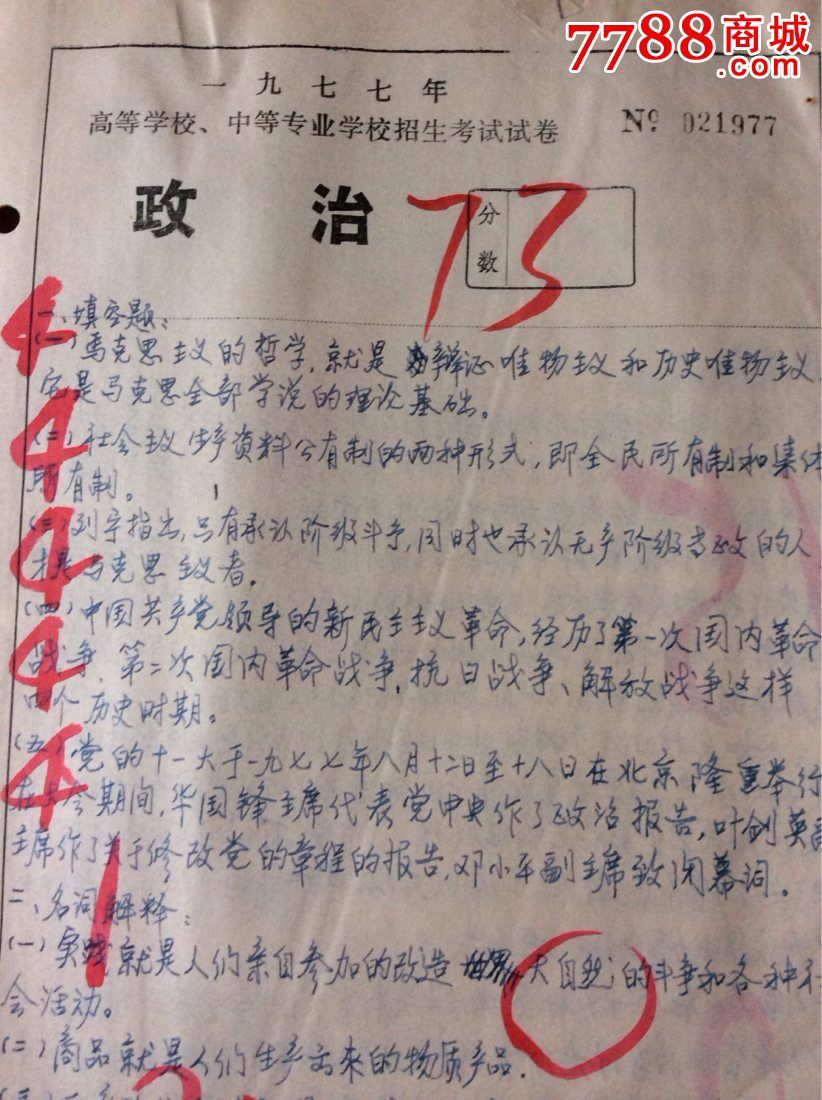 7788商城
.com
一九七七年
高等学校、中等专业学校招生考试试卷
№ 021977
政治
73
分数
一、填空题：
4
(一)马克思主义的哲学,就是辩证唯物主义和历史唯物主义,
它是马克思全部学说的理论基础。
4
(二)社会主义生产资料公有制的两种形式,即全民所有制和集体
所有制。
(三)列宁指出,只有承认阶级斗争,同时也承认无产阶级专政的人
4
才是马克思主义者。
(四)中国共产党领导的新民主主义革命,经历了第一次国内革命
4
战争、第二次国内革命战争、抗日战争、解放战争这样
四个历史时期。
(五)党的十一大于一九七七年八月十二日至十八日在北京隆重举行
4
在大会期间,华国锋主席代表党中央作了政治报告,叶剑英副
主席作了关于修改党的章程的报告,邓小平副主席致闭幕词。
二、名词解释:
1
(一)实践就是人们亲自参加的改造大自然的斗争和各种社
会活动。
(二)商品就是人们生产出来的物质产品.